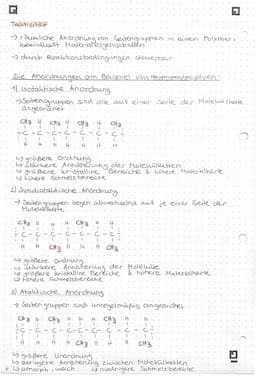 Taktizität
→ räumliche Anordnung von Seitengruppen in einem Polymer,
beeinflusst Materialeigenschaften
→ durch Reaktionsbedingungen steuerbar
Die Anordnungen am Beispiel von
1) Isotaktische Anordnung
→ Seitengruppen sind alle auf einer Seite der Molekülkette
angeordnet
CH3 H CH3 H CH3 H
- C - C - C - C - C - C -
H H H H H H
↳ größere Ordnung
↳ stärkere Annäherung der Molekülketten
↳ größere kristalline Bereiche & höhere Materialhärte
↳ höhere Schmelzbereiche
2) Syndiotaktische Anordnung
→ Seitengruppen liegen abwechselnd auf je einer Seite der
Molekülkette
- C - C - C - C - C - C -
↳ größere Ordnung
↳ stärkere Annäherung der Moleküle
↳ größere kristalline Bereiche & höhere Materialhärte
↳ höhere Schmelzbereiche
3) Ataktische Anordnung
→ Seitengruppen sind unregelmäßig angeordnet
↳ größere Unordnung
↳ geringere Annäherung zwischen Molekülketten
↳ amorph, weich ↳ niedrigere Schmelzbereiche